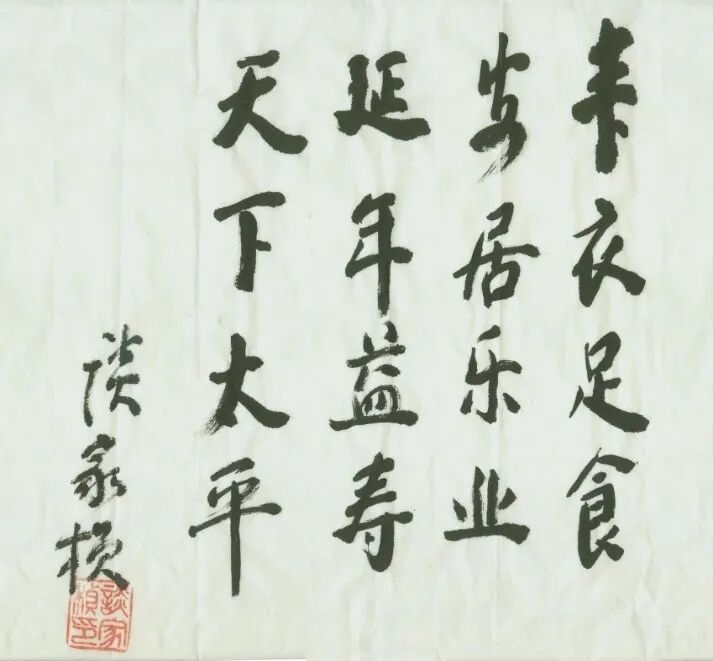 衣足食
安居乐业
延年益寿
天下太平
谈家桢
談家
楨印